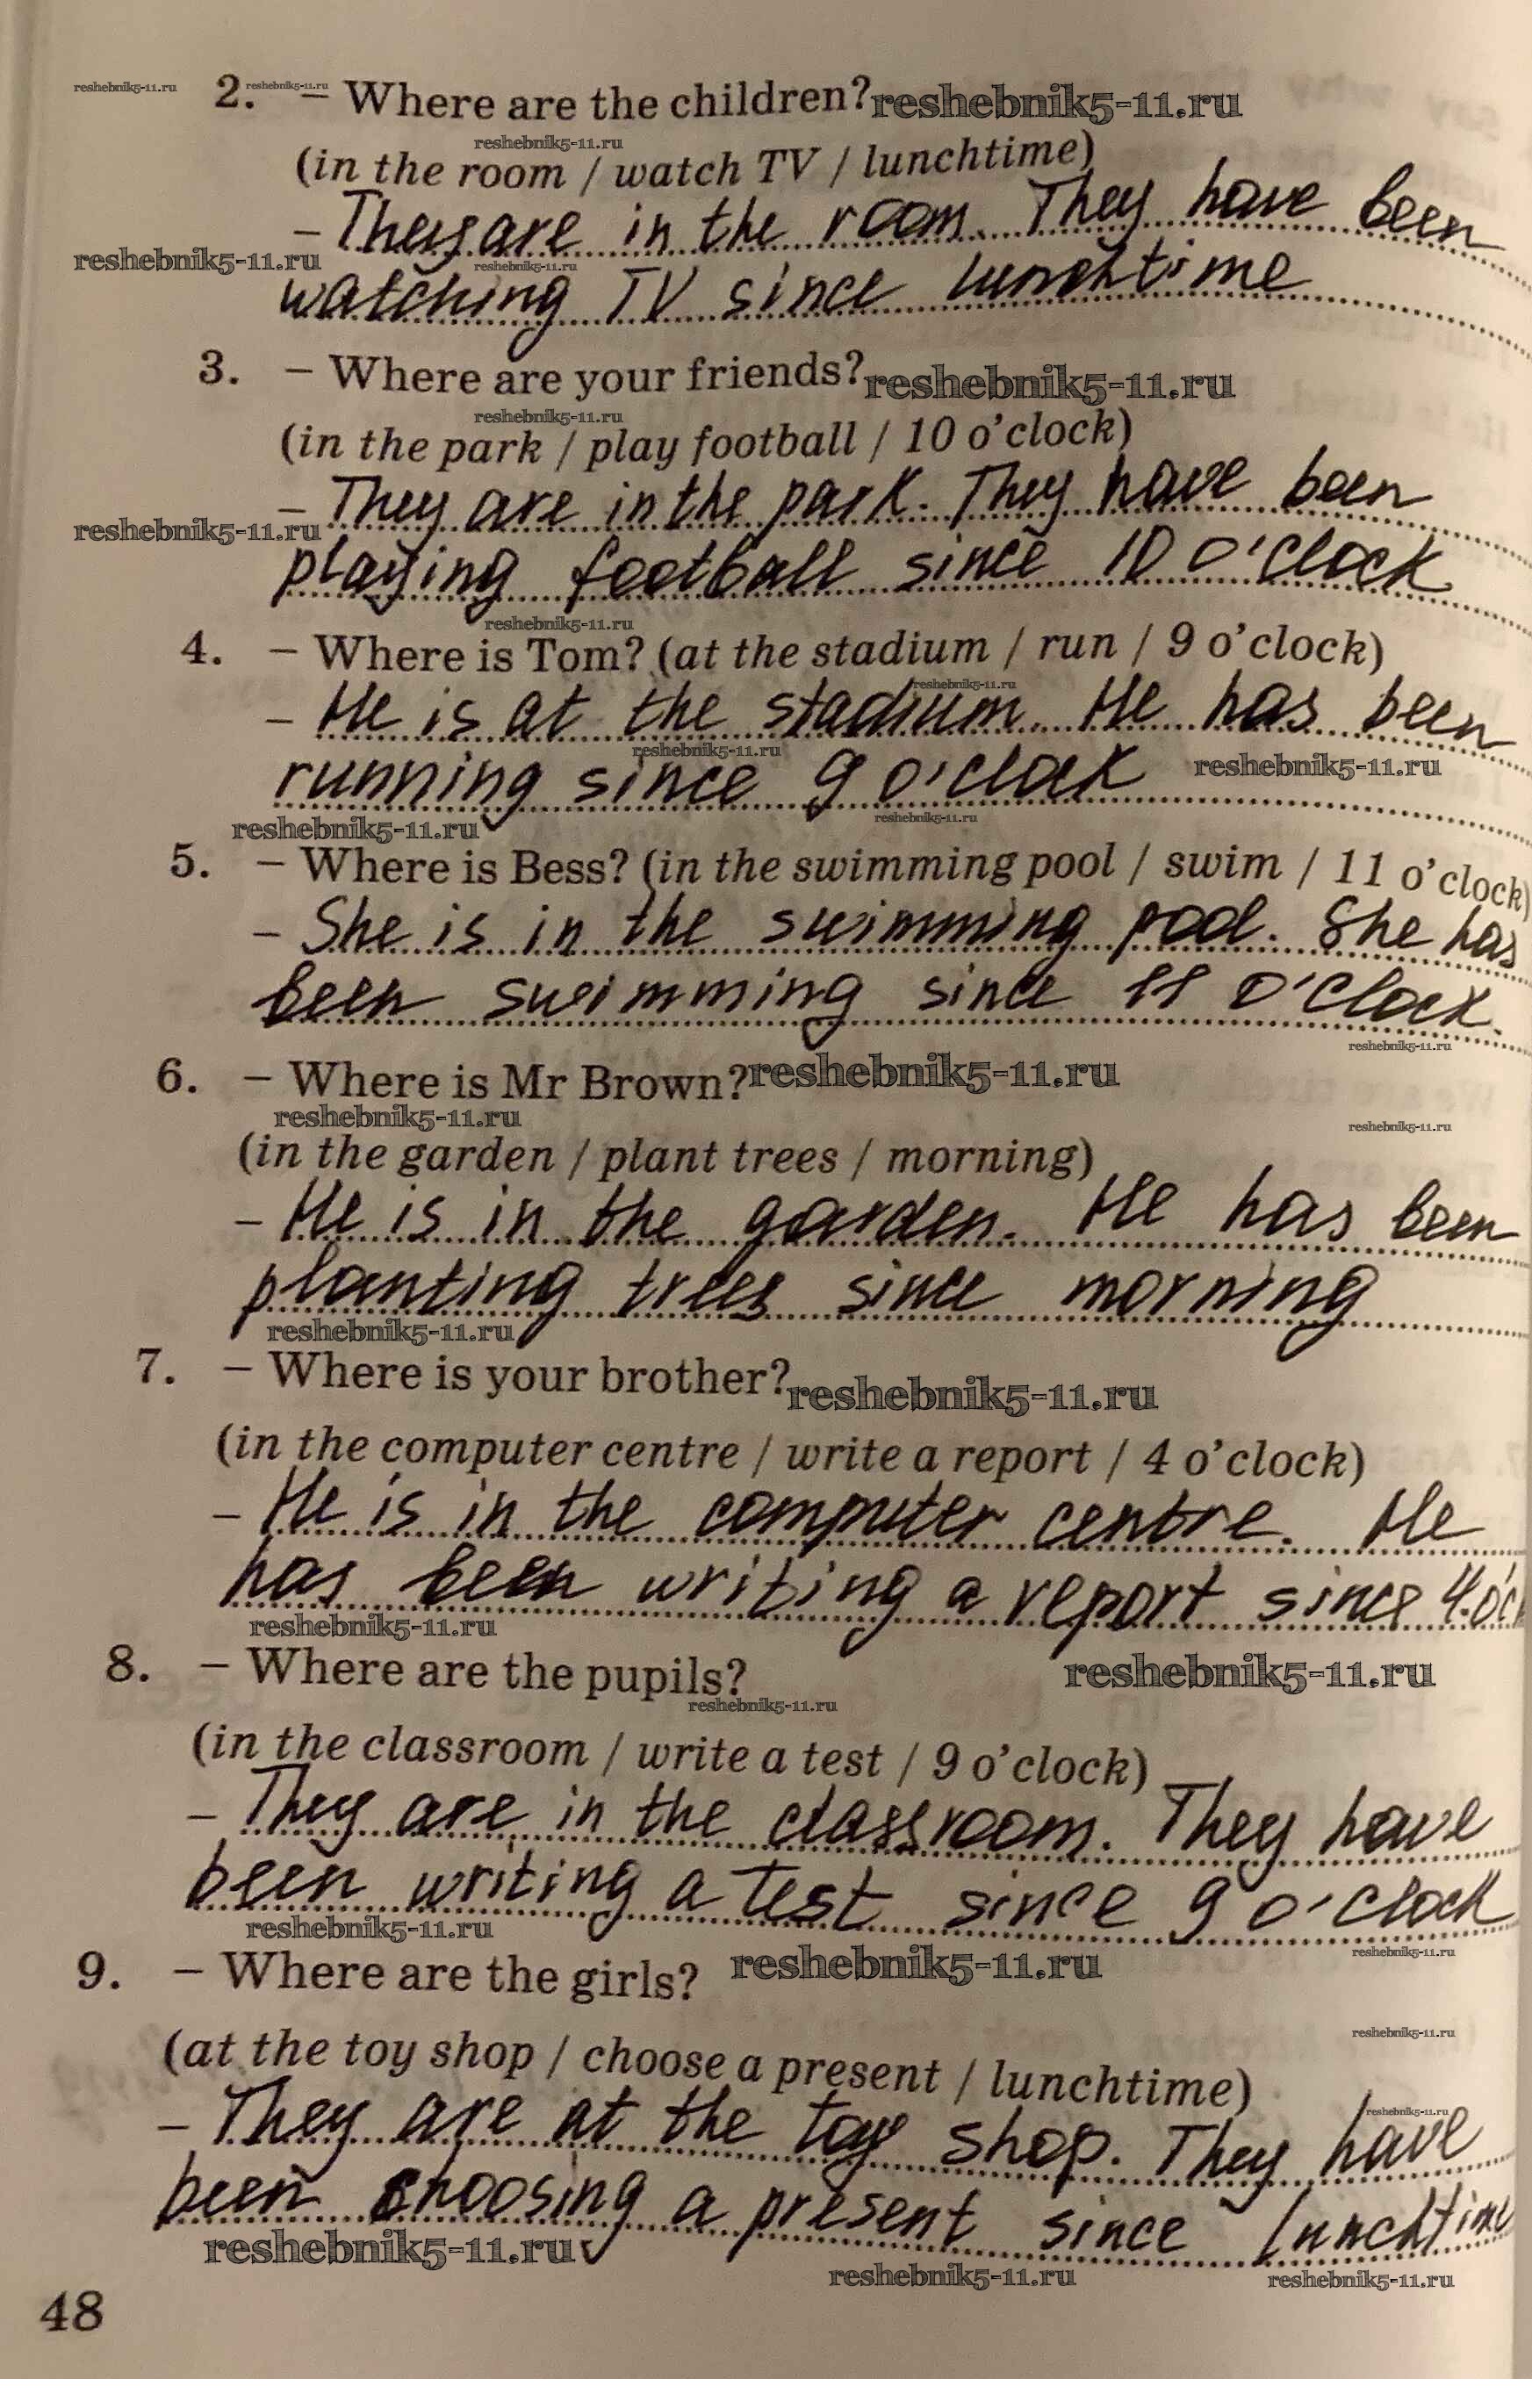 reshebnik5-11.ru 2. reshebnik5-11.ru – Where are the children? reshebnik5-11.ru
reshebnik5-11.ru
(in the room / watch TV / lunchtime)
– They are in the room. They have been
reshebnik5-11.ru reshebnik5-11.ru
watching TV since lunchtime
3. – Where are your friends? reshebnik5-11.ru
reshebnik5-11.ru
(in the park / play football / 10 o'clock)
– They are in the park. They have been
reshebnik5-11.ru
playing football since 10 o'clock
reshebnik5-11.ru
4. – Where is Tom? (at the stadium / run / 9 o'clock)
reshebnik5-11.ru
– He is at the stadium. He has been
reshebnik5-11.ru
running since 9 o'clock reshebnik5-11.ru
reshebnik5-11.ru reshebnik5-11.ru
5. – Where is Bess? (in the swimming pool / swim / 11 o'clock)
– She is in the swimming pool. She has
been swimming since 11 o'clock.
reshebnik5-11.ru
6. – Where is Mr Brown? reshebnik5-11.ru
reshebnik5-11.ru reshebnik5-11.ru
(in the garden / plant trees / morning)
– He is in the garden. He has been
planting trees since morning
reshebnik5-11.ru
7. – Where is your brother? reshebnik5-11.ru
(in the computer centre / write a report / 4 o'clock)
– He is in the computer centre. He
has been writing a report since 4 o'cl
reshebnik5-11.ru
8. – Where are the pupils? reshebnik5-11.ru
reshebnik5-11.ru
(in the classroom / write a test / 9 o'clock)
– They are in the classroom. They have
been writing a test since 9 o'clock
reshebnik5-11.ru
9. – Where are the girls? reshebnik5-11.ru reshebnik5-11.ru
reshebnik5-11.ru
(at the toy shop / choose a present / lunchtime)
reshebnik5-11.ru
– They are at the toy shop. They have
been choosing a present since lunchtime
reshebnik5-11.ru
reshebnik5-11.ru reshebnik5-11.ru
48